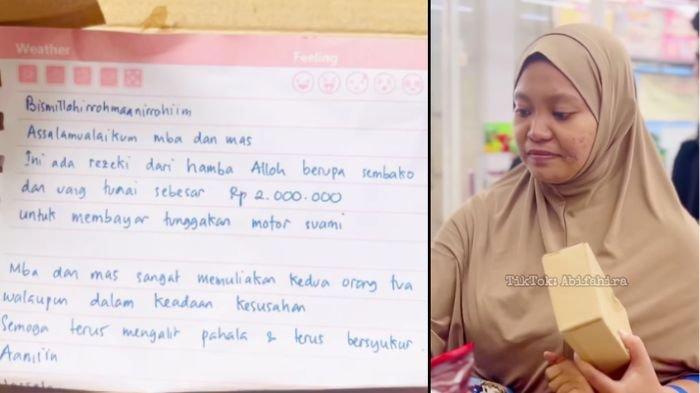 Weather
Feeling
Bismillohirrohmaanirrohiim
Assalamualaikum mba dan mas
Ini ada rezeki dari hamba Alloh berupa sembako
dan uang tunai sebesar Rp 2.000.000
untuk membayar tunggakan motor suami
Mba dan mas sangat memuliakan kedua orang tua
walaupun dalam keadaan kesusahan
Semoga terus mengalir pahala & terus bersyukur.
Aamiin
TikTok: Abifahira